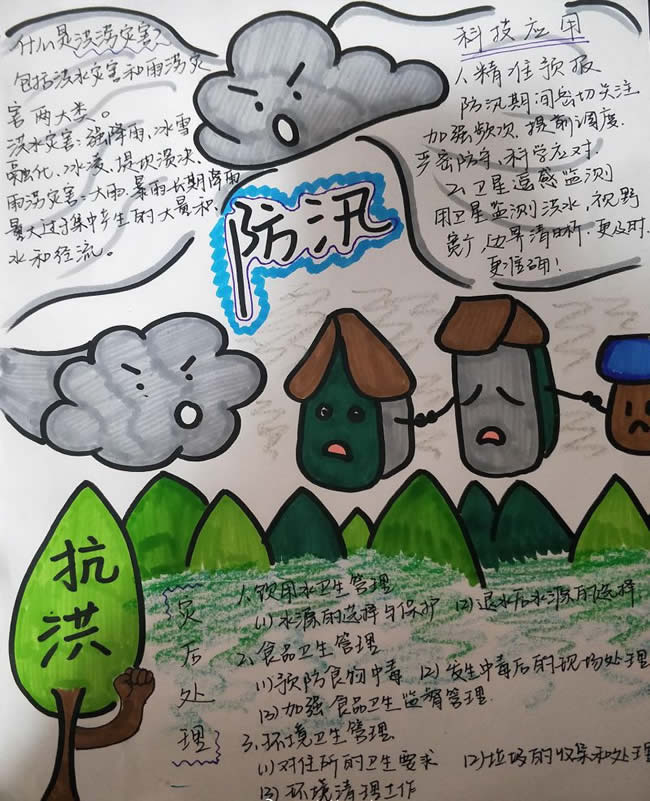 什么是洪涝灾害?
包括洪水灾害和雨涝灾
害两大类。
洪水灾害:强降雨、冰雪
融化、冰凌、堤坝溃决、
雨涝灾害:大雨、暴雨长期降雨
量大过于集中产生的大量积
水和径流。
科技应用
1、精准预报
防汛期间密切关注
加强频次,提前调度.
严密防守,科学应对.
2、卫星遥感监测
用卫星监测洪水,视野
宽广,边界清晰,更及时.
更准确!
防汛
抗洪
灾后处理
1、饮用水卫生管理
(1)水源的选择与保护 (2)退水后水源的选择
2、食品卫生管理
(1)预防食物中毒 (2)发生中毒后的现场处理
(3)加强食品卫生监督管理.
3、环境卫生管理
(1)对住所的卫生要求 (2)垃圾的收集和处理
(3)环境清理工作